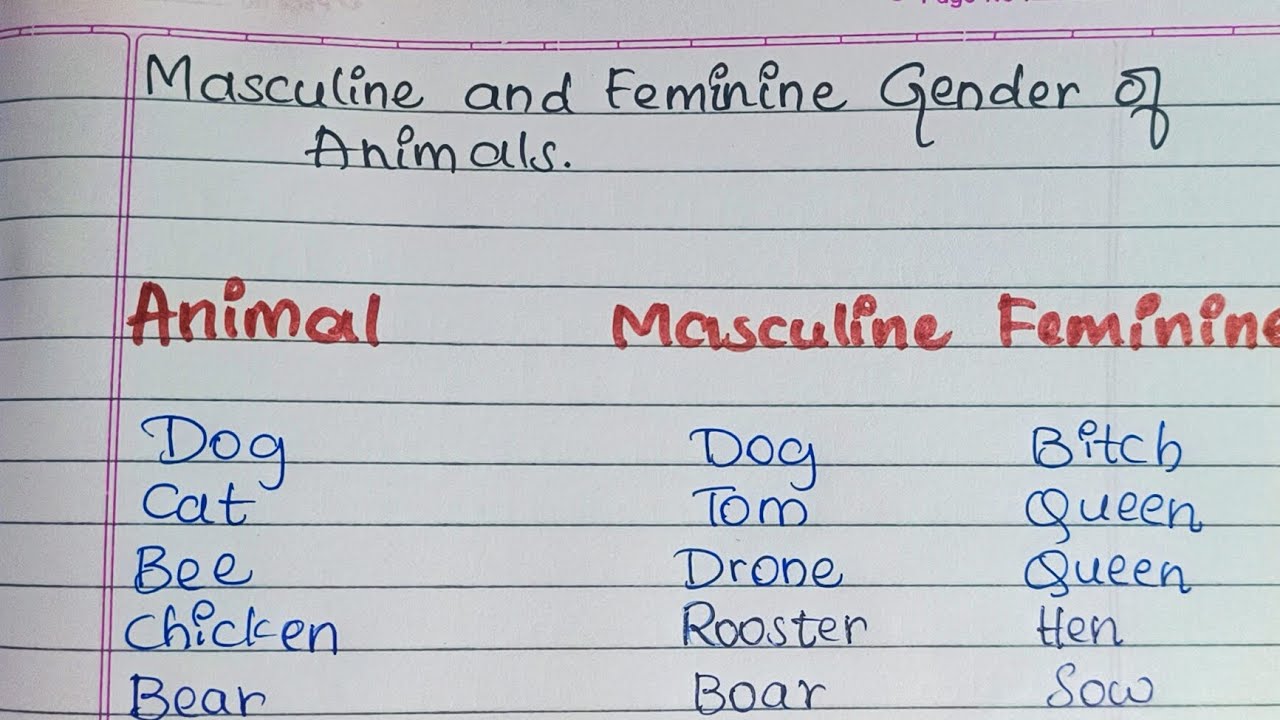 Masculine and Feminine Gender of
Animals.
Animal Masculine Feminine
Dog Dog Bitch
Cat Tom Queen
Bee Drone Queen
Chicken Rooster Hen
Bear Boar Sow